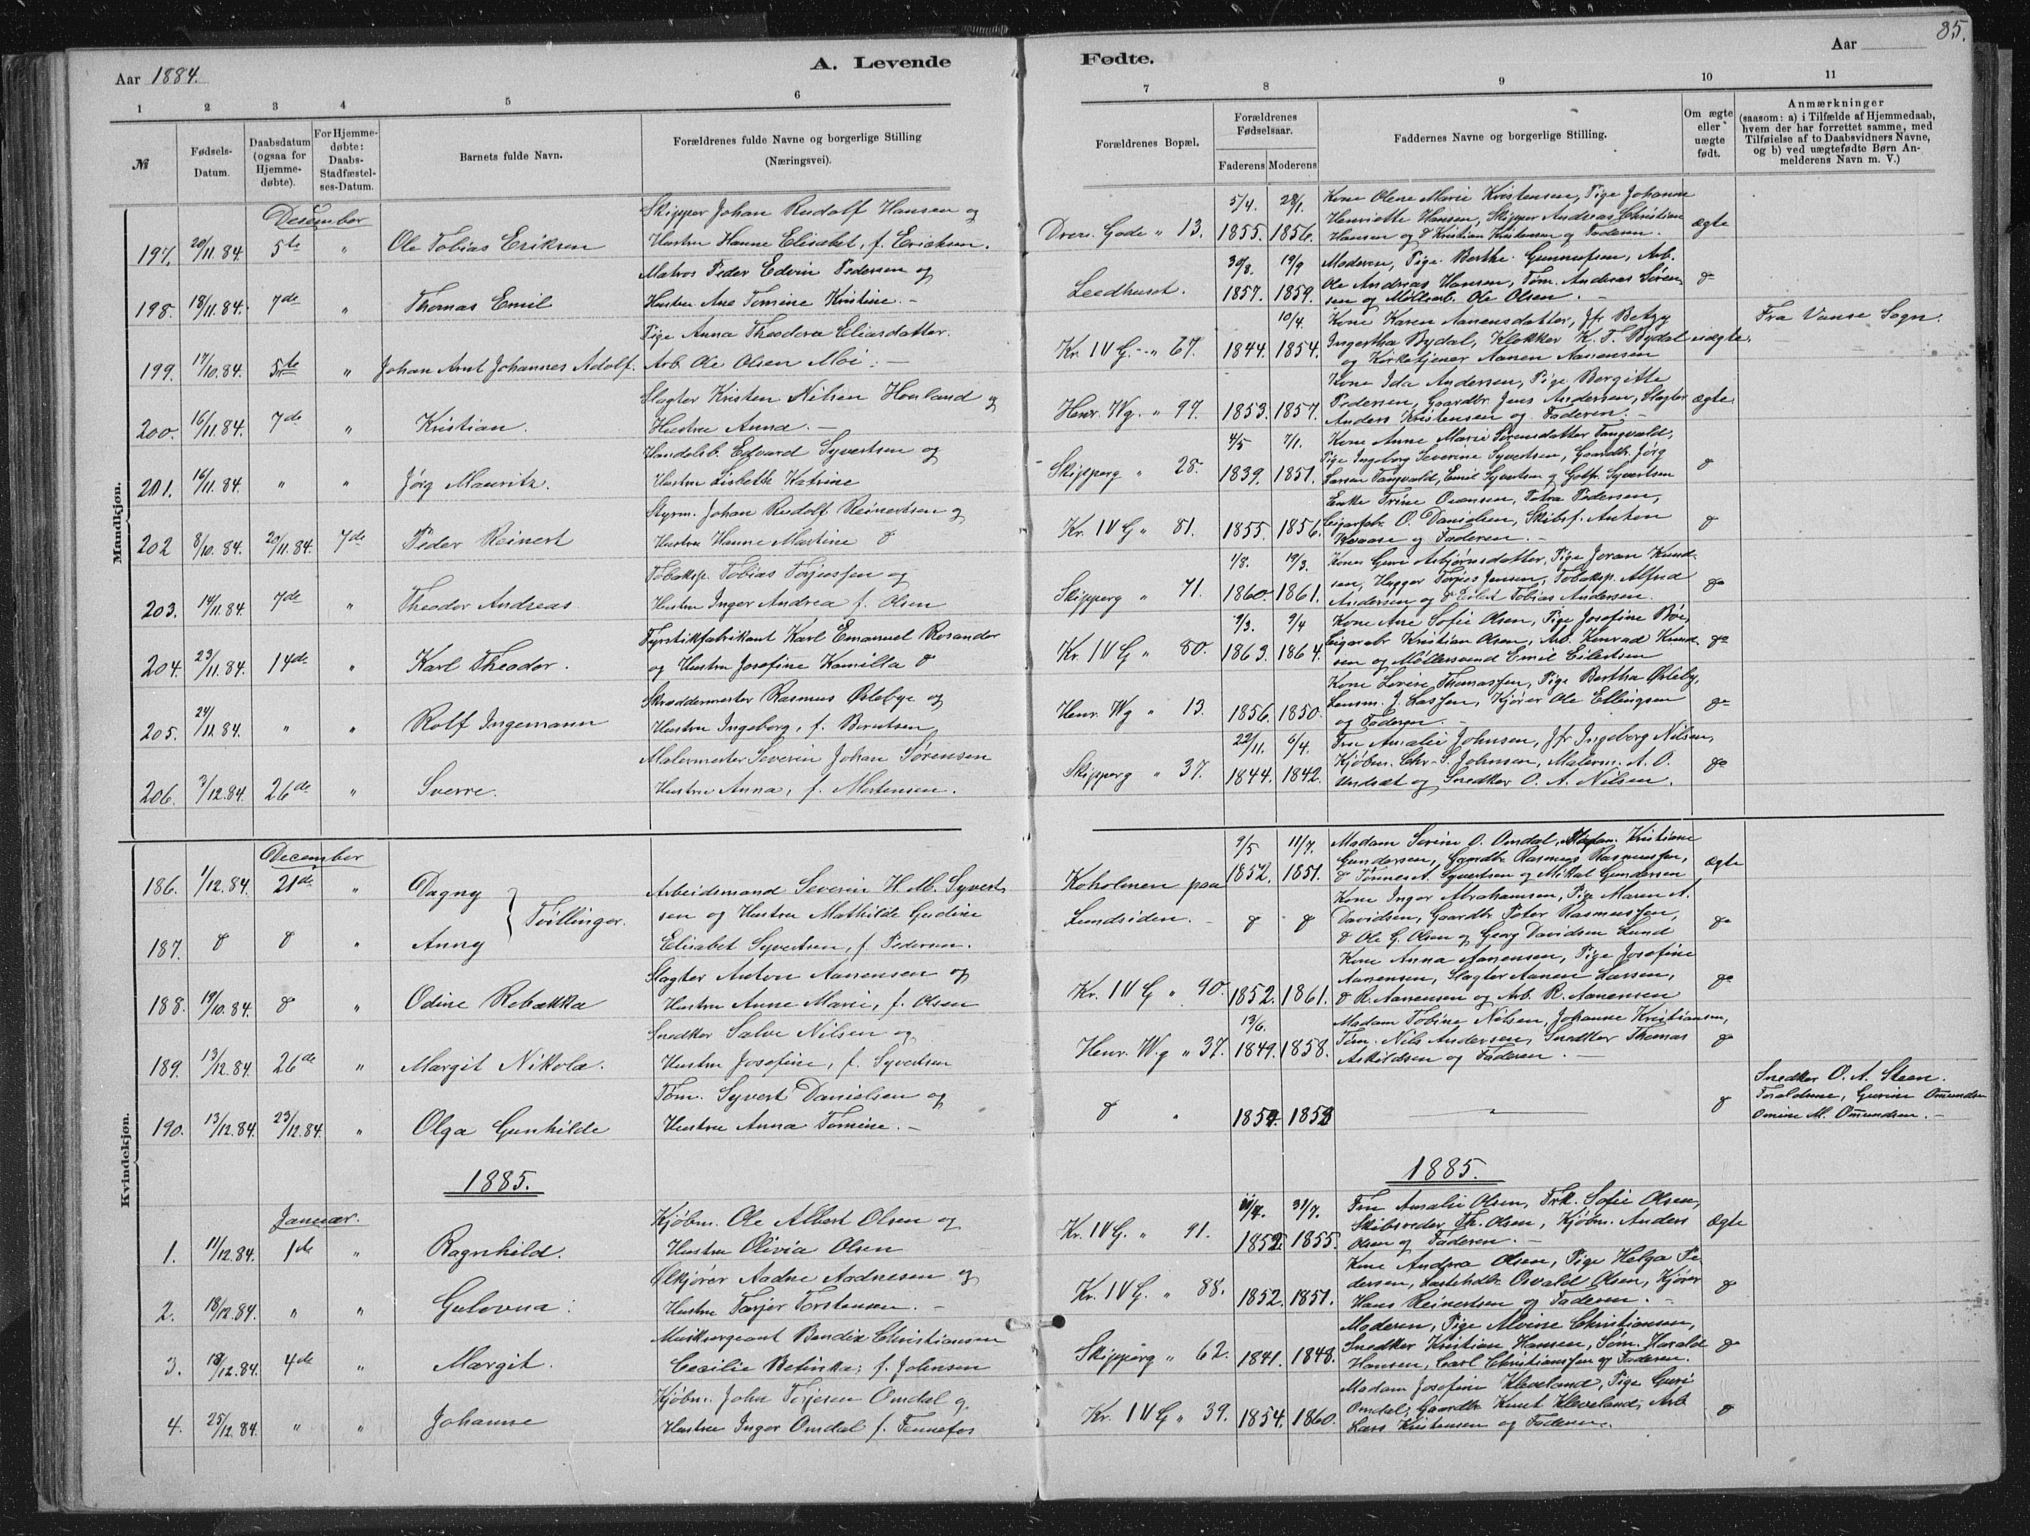 Aar 1884.
A. Levende
Fødte.
Aar
85.
1 2 3 4 5 6
7 8 9 10 11
№
Fødsels-
Datum.
Daabsdatum
(ogsaa for
Hjemme-
døbte).
For Hjemme-
døbte:
Daabs-
Stadfæstel-
ses-Datum.
Barnets fulde Navn.
Forældrenes fulde Navne og borgerlige Stilling
(Næringsvei).
Forældrenes Bopæl.
Forældrenes
Fødselsaar.
Faderens Moderens
Faddernes Navne og borgerlige Stilling.
Om ægte
eller
uægte
født.
Anmærkninger
(saasom: a) i Tilfælde af Hjemmedaab,
hvem der har forrettet samme, med
Tilføielse af to Daabsvidners Navne,
og b) ved uægtefødte Børn An-
melderens Navn m. V.)
Mandkjøn.
December
Skipper Johan Rudolf Hansen og
197. 20/11.84. 5te " Ole Tobias Eriksen Hustru Hanne Elisabet, f. Ericksen.
5/4. 28/1. Kone Olene Marie Kristensen, Pige Johanne
Henriette Hansen, Skipper Andreas Christian
Dron. Gade " 13. 1855. 1856. Hansen og d Kristian Kristensen og Faderen. ægte
Matros Peder Edvin Pedersen og
198. 18/11.84. 7de " Thomas Emil Hustru Ane Tomine Kristine. -
30/8. 19/9 Moderen, Pige Berthe Gunnufsen, Arb.
Leedhuset. 1857. 1859. Ole Andreas Hansen, Tøm. Andreas Søren-
sen og Møllearb. Ole Olsen. - d
Pige Anna Theodora Eliasdatter.
199. 17/10.84. 5te " Johan Arnt Johannes Adolf. Arb. Ole Olsen Moi. -
10/4. Kone Karen Aanensdatter, Jfr Betzy
Kr. IV G. " 67. 1844. 1854. Ingertha Bydal, Klokker K. T. Bydal uægte.
og Kirketjener Aanen Aanensen
Fra Vanse Sogn.
Slagter Kristen Nilsen Honland og
200. 16/11.84. 7de " Kristian. Hustru Anna. -
Kone Ida Andersen, Pige Bergitte
Henr. Wg. " 97. 1853. 1857. Pedersen, Gaardbr Jens Andersen, Slagter ægte.
Anders Kristensen og Faderen. -
Handelsb. Edvard Syvertsen og
201. 16/11.84. " " Jørg Mauritz. Hustru Lisbeth Katrine
4/5 7/1. Kone Anne Marie Sørensdatter Tangvald,
Pige Ingeborg Severine Syvertsen, Gaardbr. Jørg
Skipperg " 28. 1839. 1851. Larsen Tangvald, Emil Syvertsen og Gotfr. Syvertsen d
Styrm. Johan Rudolf Reinertsen og
202 8/10.84. 20/11.84. 7de Peder Reinert Hustru Hanne Martine d
Enke Trine Osensen, Petra Pedersen,
Kr. IV G " 81. 1855. 1856. Cigarfabr. O. Danielsen, Skibsf. Anton
Kvaase og Faderen. - d
Tobaksp. Tobias Torjussen og
203. 14/11.84 7de " Theodor Andreas Hustru Inger Andrea f. Olsen
1/8. 19/3. Kone Guri Asbjørnsdatter, Pige Joran Knud-
sen, Hugger Torjus Jensen, Tobaksp. Alfred
Skipperg " 71. 1860. 1861. Andersen og d Eilert Tobias Andersen. do
Fyrstikfabrikant Karl Emanuel Rosander
204. 23/11.84. 14de " Karl Theodor. og Hustru Josefine Kamilla d
9/3. 9/4 Kone Ane Sofie Olsen, Pige Josefine Bøe,
Kr. IV G " 80. 1863. 1864. Cigararbr Kristian Olsen, Arb. Konrad Knud-
sen og Møllersvend Emil Eilertsen do
Skræddermester Rasmus Østebye og
205. 24/11.84. " " Rolf Ingemann Hustru Ingeborg, f. Berntsen
Kone Lovise Thomassen, Pige Bertha Østeby,
Henr. Wg " 13. 1856. 1850. Lensm. J. Lassen, Kjører Ole Ellingsen
og Faderen. - do
Malermester Severin Johan Sørensen
206. 3/12.84. 26de " Sverre. Hustru Anna, f. Mortensen.
22/11. 6/4. Fru Amalie Johnsen, Jfr Ingeborg Nilsen,
Skipperg " 37. 1844. 1842. Kjøbm. Chr. S. Johnsen, Malerm. A. O.
Undsæt og Snedker O. A. Nilsen. do
Kvindekjøn.
December
186. 1/12.84. 21de " Dagny } Tvillinger. Arbeidsmand Severin H. M. Syvert-
sen og Hustru Mathilde Gudine
187. d d " Anny Elisabet Syvertsen, f. Pedersen.
9/5 11/7. Madam Serine O. Omdal, Kristiane
Gundersen, Gaardbr Rasmus Rasmussen,
Koholmen paa 1852. 1851. d Tønnes A. Syvertsen og Mikal Gundersen ægte
Kone Inger Abrahamsen, Pige Maren A.
Lundsiden. - d d Davidsen, Gaardbr Peter Rasmussen,
d Ole G. Olsen og Georg Davidsen Lund do
Slagter Anton Aanensen og
188. 19/10.84. d " Odine Rebækka Hustru Anne Marie, f. Olsen
Kone Anna Aanensen, Pige Josefine
Kr. IV G " 90. 1852. 1861. Aanensen, Slagter Aanen Larsen,
d R. Aanensen og Arb. R. Aanensen do
Snedker Salve Nilsen og
189. 13/12.84. 26de " Margit Nikola. Hustru Josefine, f. Syvertsen
13/6. Madam Tobine Nilsen, Johanne Kristiansen,
Henr. Wg " 37. 1849. 1858. Tøm. Nils Andersen, Snedker Thomas
Askildsen og Faderen. - d
Tøm. Syvert Danielsen og
190. 13/12.84. 23/12.84. " Olga Gunhilde Hustru Anna Tomine. -
d " 1854 1853 " d
Snedker O. A. Steen.
Forældrene, Gurine Omundsen
Omine M. Omundsen. -
1885.
1885.
Januar.
Kjøbm. Ole Albert Olsen og
1. 11/12.84. 1de " Ragnhild. Hustru Olivia Olsen
31/7. Fru Amalie Olsen, Frk. Sofie Olsen,
Kr. IV G. " 91. 1852. 1855. Skibsreder Th. Olsen, Kjøbm. Anders
Olsen og Faderen. - ægte
Ølkjører Aadne Aadnesen og
2. 18/12.84. " " Gulovna. Hustru Torjer Torstensen. -
Kone Andrea Olsen, Pige Helga Pe-
Kr. IV G. " 88. 1852. 1851. dersen, Lastehdlr Osvald Olsen, Kjører
Hans Reinertsen og Faderen. - d
Musiksergeant Bendix Christiansen
3. 18/12.84. 4de " Margit. Cecilie Betinka, f. Johnsen
Moderen, Pige Alvine Christiansen,
Skipperg " 62. 1841. 1848. Snedker Kristian Hansen, Søm. Harald
Hansen, Carl Christianssen og Faderen. d
Kjøbm. John Torjesen Omdal og
4. 25/12.84. " " Johanne Hustru Inger Omdal f. Fennefos
Madam Josefine Kleveland, Pige Guri
Kr. IV G " 39. 1854. 1860. Omdal, Gaardbr Knut Kleveland, Arb
Lars Kristensen og Faderen. d